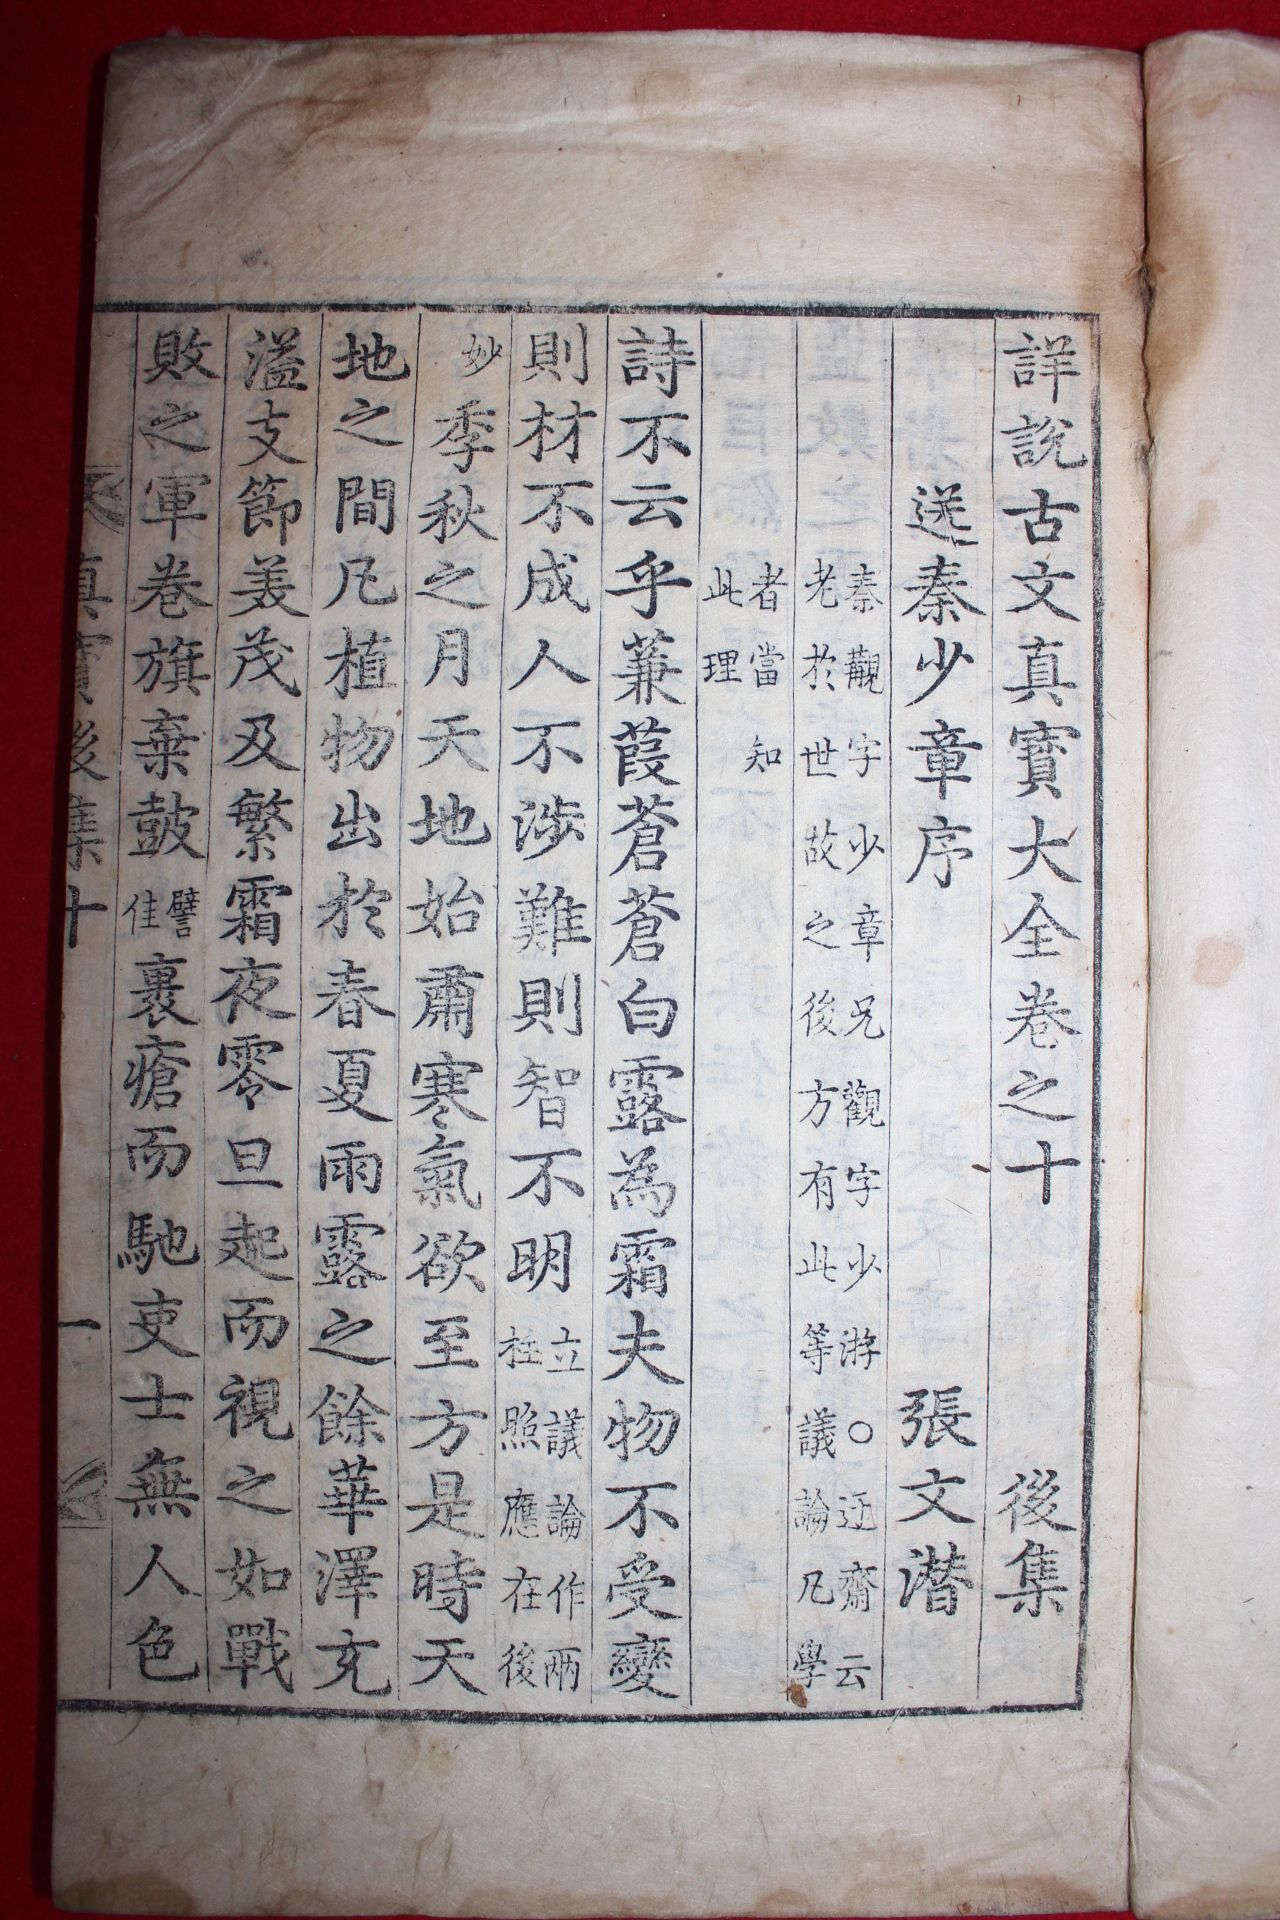 詳說古文真寶大全卷之十 後集
送秦少章序 張文潛
秦觀字少章兄觀字少游○迂齋云
老於世故之後方有此等議論凡學
者當知
此理
詩不云乎蒹葭蒼蒼白露為霜夫物不受變
則材不成人不涉難則智不明立議論作兩柱照應在後
妙季秋之月天地始肅寒氣欲至方是時天
地之間凡植物出於春夏雨露之餘華澤充
溢支節美茂及繁霜夜零旦起而視之如戰
敗之軍卷旗棄鼓譬佳裹瘡而馳吏士無人色
真寶後集十 一